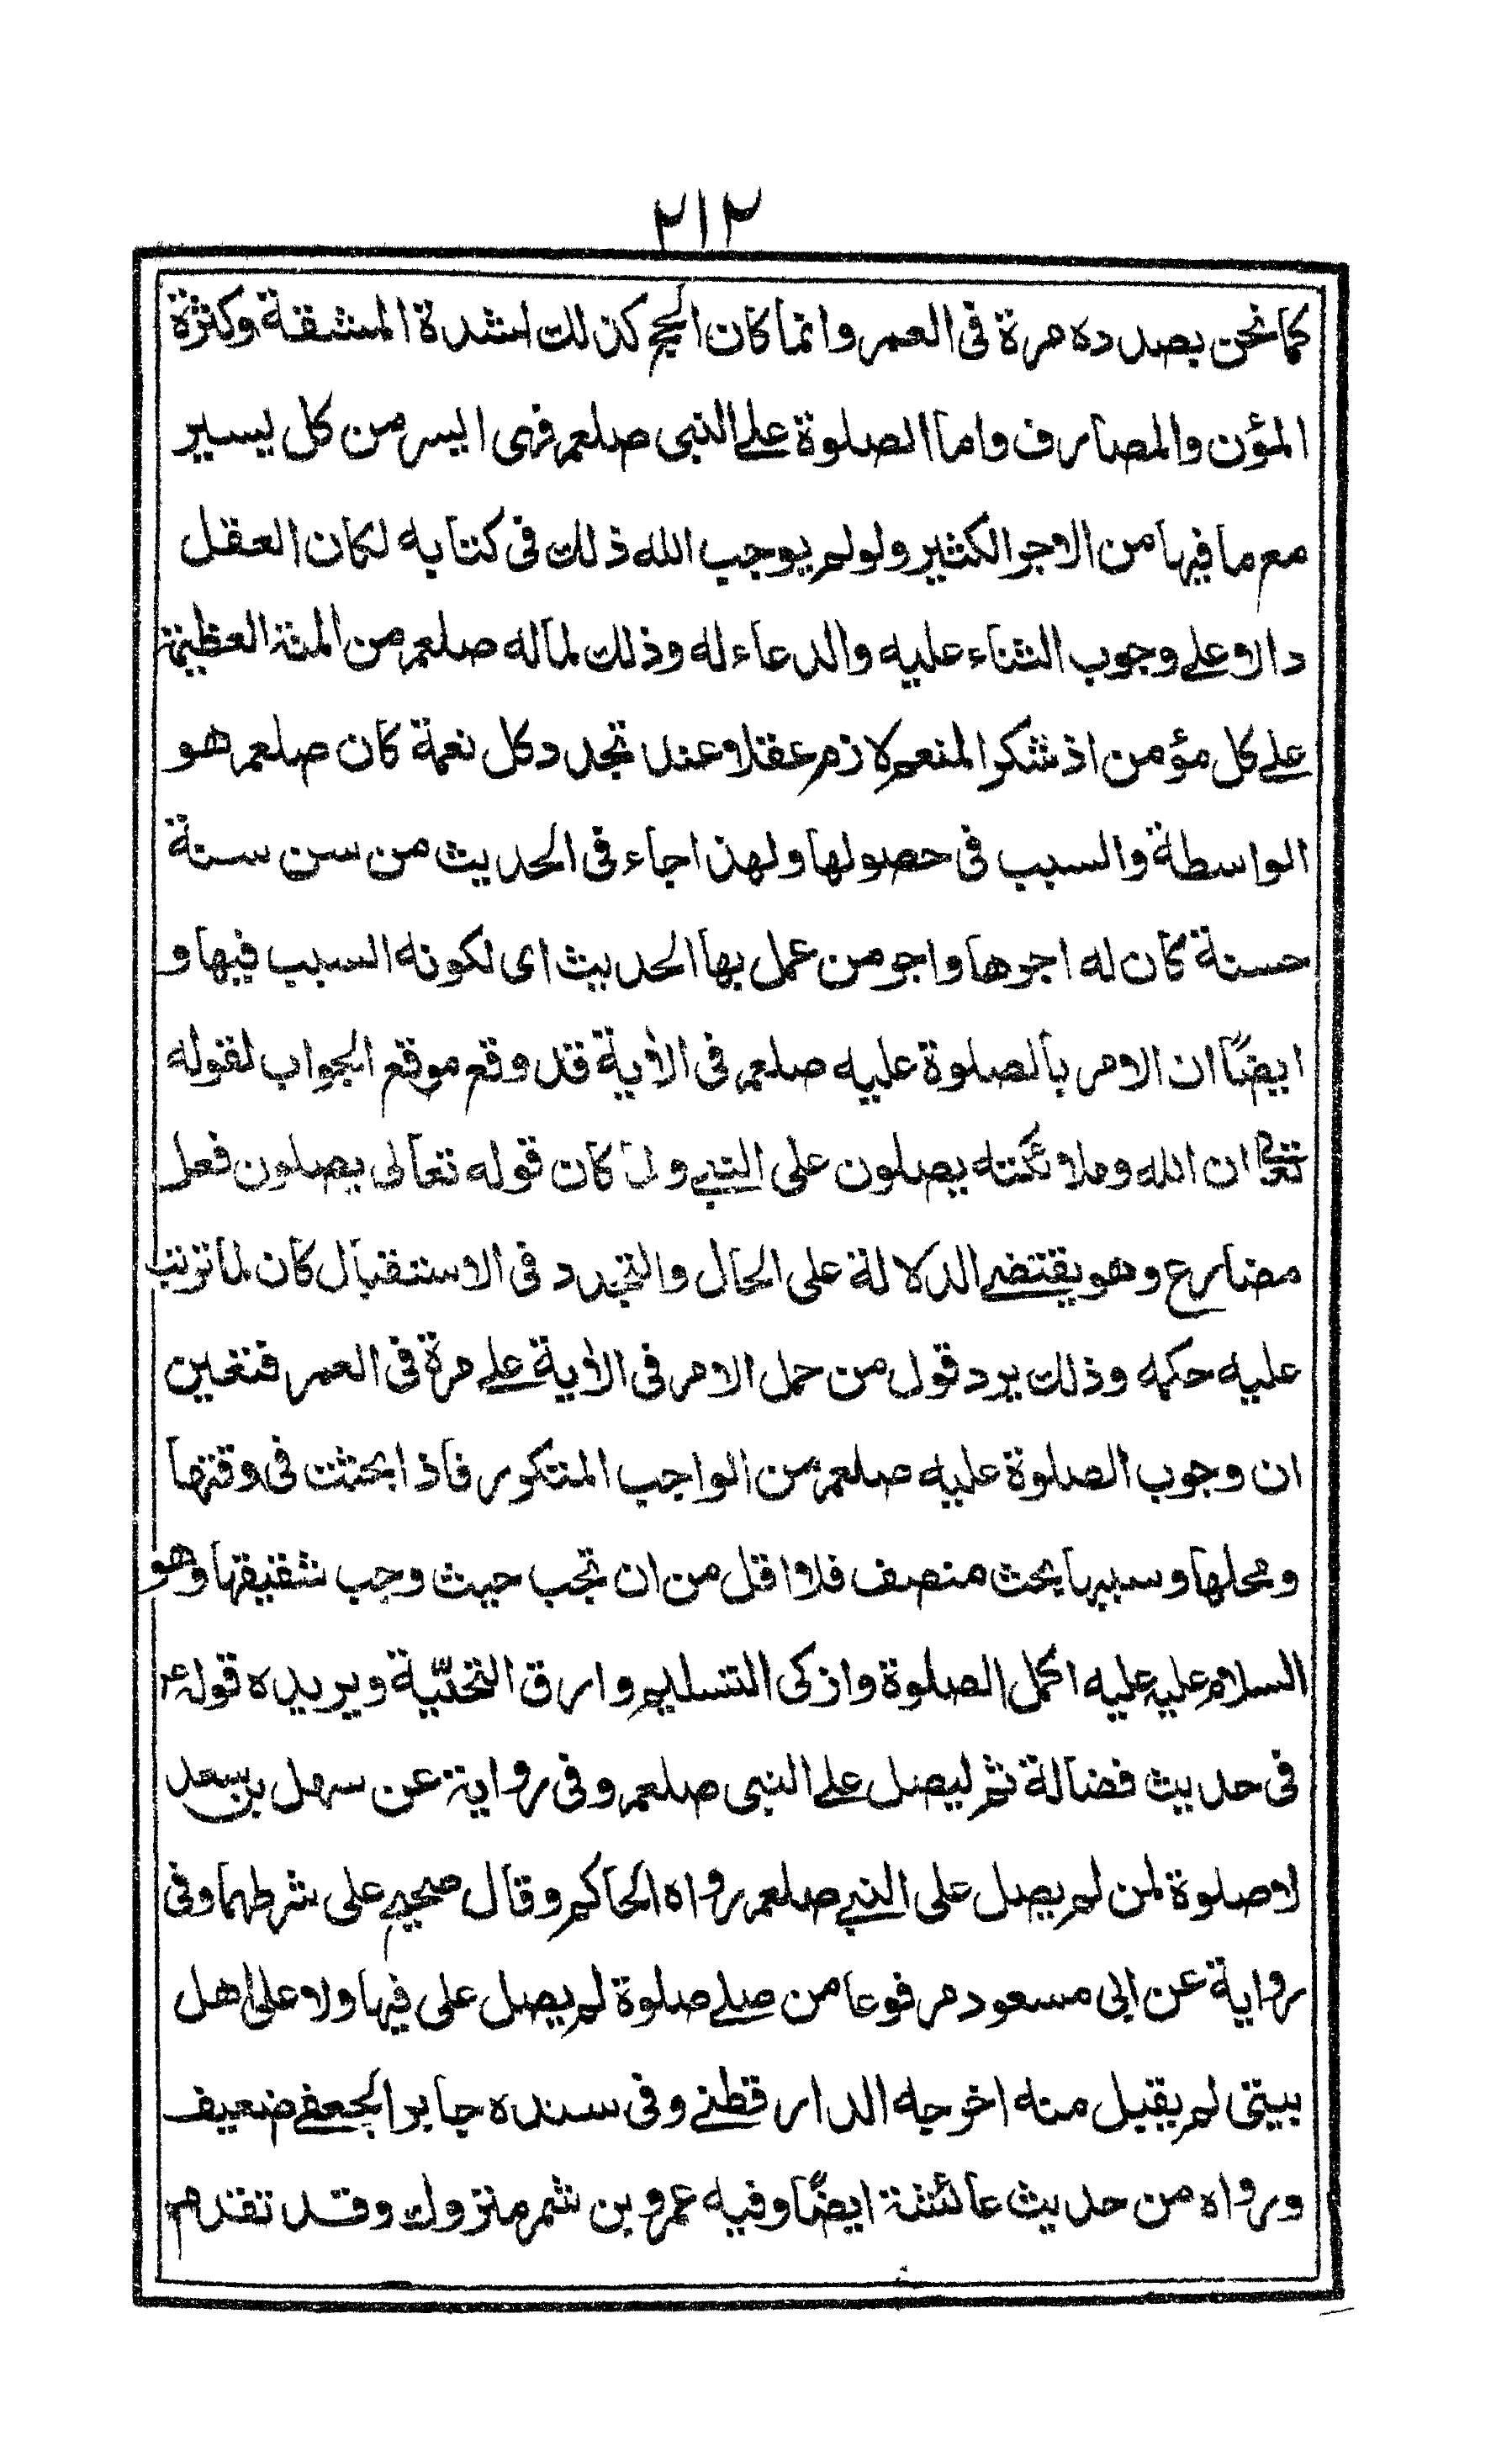 ٢١٢
كما نحن بصدده مرة فى العمر وانما كان الحج كذلك لشدة المشقة وكثرة
المؤن والمصارف واما الصلوة على النبى صلعم فهى ايسر من كل يسير
مع ما فيها من الاجر الكثير ولولم يوجب الله ذلك فى كتابه لكان العقل
دالا على وجوب الثناء عليه والدعاء له وذلك لماله صلعم من المنة العظيمة
على كل مؤمن اذ شكر المنعم لازم عقلا وعند تجدد كل نعمة كان صلعم هو
الواسطة والسبب فى حصولها ولهذا جاء فى الحديث من سن سنة
حسنة كان له اجرها واجر من عمل بها الحديث اى لكونه السبب فيها و
ايضًا ان الامر بالصلوة عليه صلعم فى الأية قد وقع موقع الجواب لقوله
تعالى ان الله وملائكته يصلون على النبي ولما كان قوله تعالى يصلون فعل
مضارع وهو يقتضے الدلالة على الحال والتجدد فى الاستقبال كان لما ترتب
عليه حكمه وذلك يرد قول من حمل الامر فى الأية على مرة فى العمر فتعين
ان وجوب الصلوة عليه صلعم من الواجب المتكرر فاذا بحثت فى وقتها
ومحلها وسببها بحث منصف فلا اقل من ان تجب حيث وجب شقيقها وهو
السلام عليه عليه اكمل الصلوة وازكى التسليم وارق التحيّة ويريده قوله ﷺ
فى حديث فضالة ثم ليصل على النبى صلعم وفى رواية عن سهل بن سعد
لا صلوة لمن لم يصل على النبي صلعم رواه الحاكم وقال صحيح على شرطهما وفى
رواية عن ابى مسعود مرفوعا من صلے صلوة لم يصل على فيها ولا على اهل
بيتى لم يقبل منه اخرجه الدارقطنے وفى سنده جابر الجعفے ضعيف
ورواه من حديث عائشة ايضًا وفيه عمرو بن شمر متروك وقد تقدم